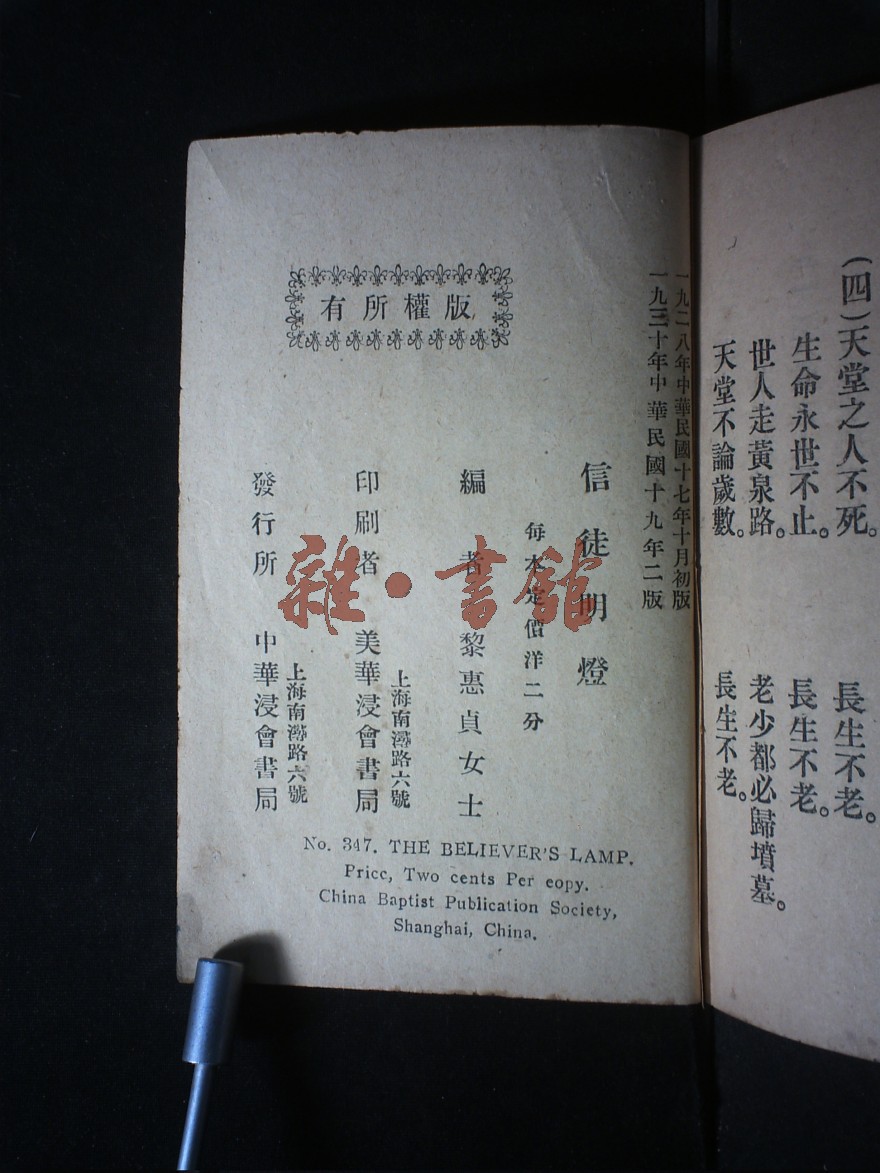 (四)天堂之人不死。 長生不老。
生命永世不止。 長生不老。
世人走黃泉路。 老少都必歸墳墓。
天堂不論歲數。 長生不老。
一九二八年中華民國十七年十月初版
一九三十年中華民國十九年二版
信徒明燈
每本定價洋二分
編者 黎惠貞女士
上海南潯路六號
印刷者 美華浸會書局
上海南潯路六號
發行所 中華浸會書局
有所權版
No. 347. THE BELIEVER'S LAMP.
Pricc, Two cents Per eopy.
China Baptist Publication Society,
Shanghai, China.
雜·書館